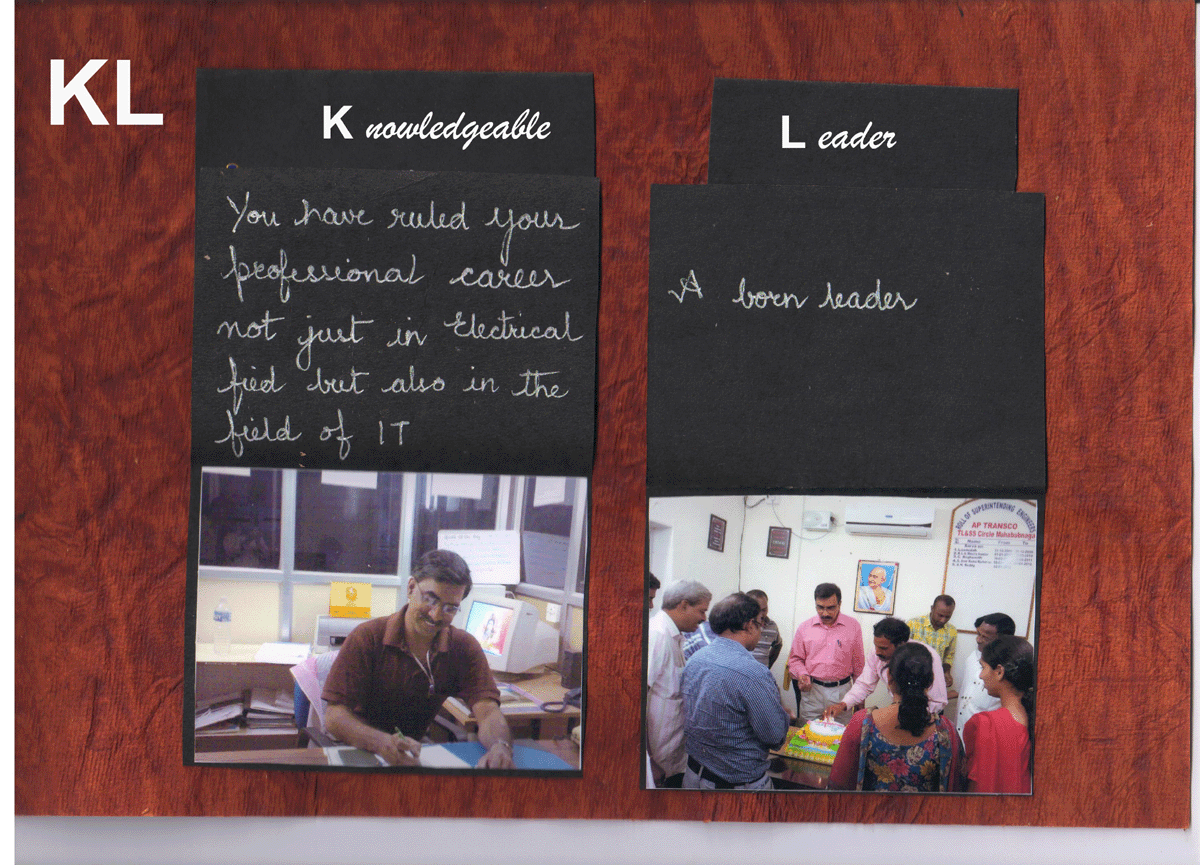 KL
K nowledgeable
You have ruled your
professional career
not just in Electrical
fied but also in the
field of IT
L eader
A born leader
ROLL OF SUPERINTENDING ENGINEERS
AP TRANSCO
TL&SS Circle Mahabubnagar